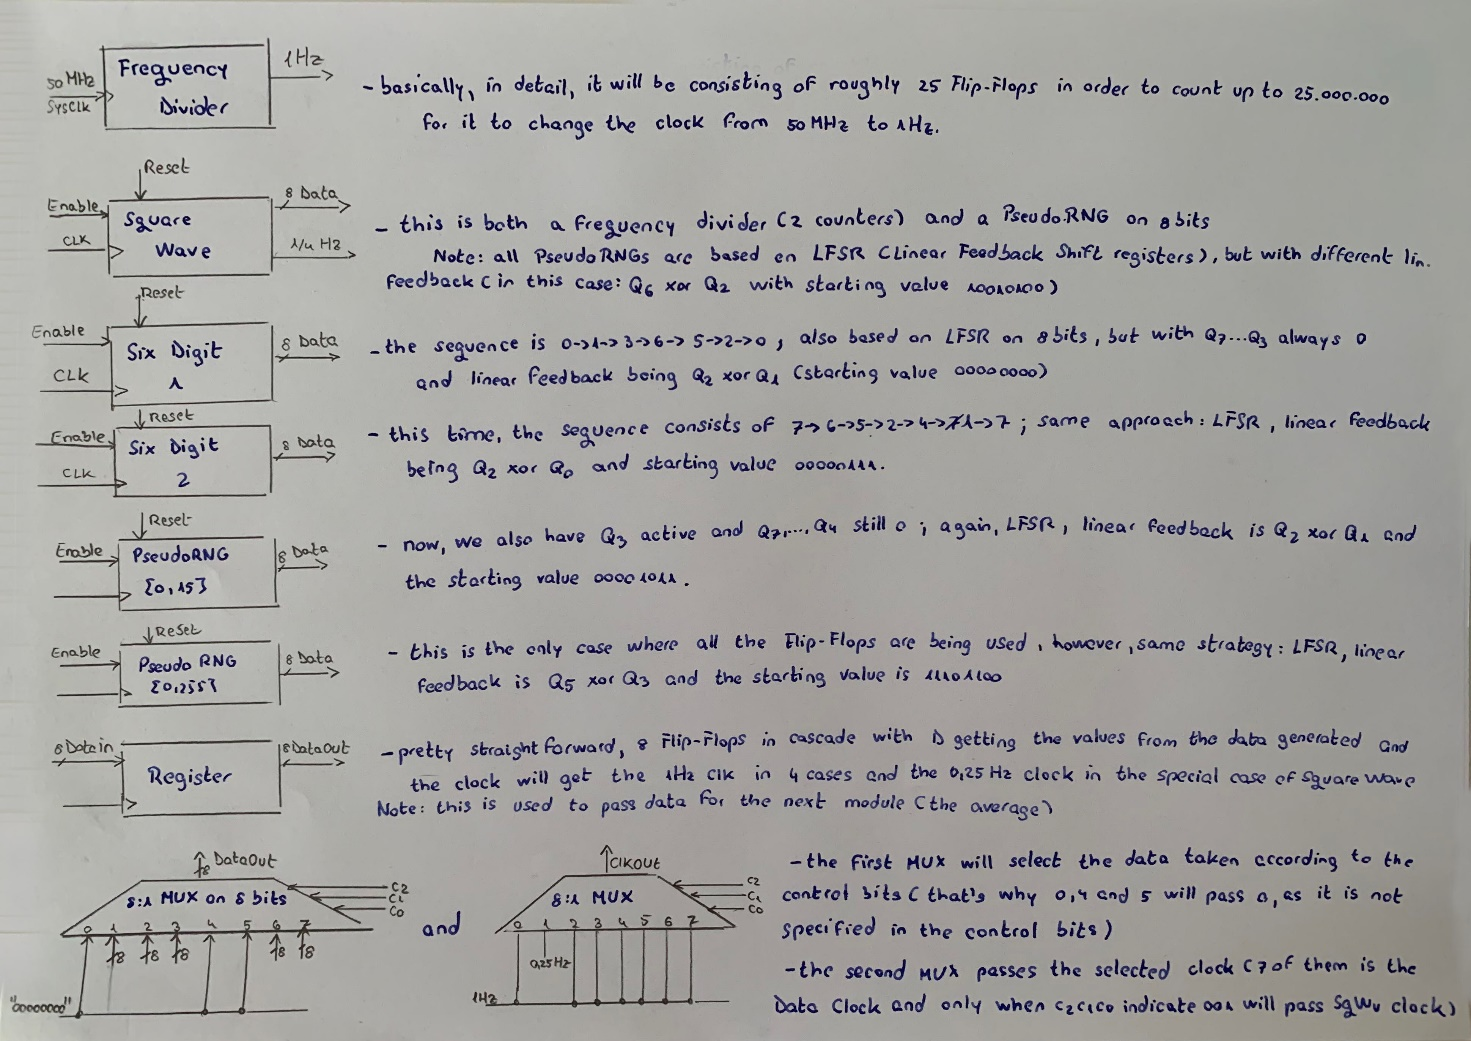 50 MHz
SysClk
Frequency
Divider
1Hz
- basically, in detail, it will be consisting of roughly 25 Flip-Flops in order to count up to 25.000.000
for it to change the clock from 50 MHz to 1Hz.
Reset
Enable
CLK
Square
Wave
8 Data
1/4 Hz
- this is both a frequency divider (2 counters) and a PseudoRNG on 8 bits
Note: all PseudoRNGs are based on LFSR (Linear Feedback Shift registers), but with different lin.
feedback (in this case: Q6 xor Q2 with starting value 10010100)
Reset
Enable
CLK
Six Digit
1
8 Data
- the sequence is 0->1->3->6->5->2->0 ; also based on LFSR on 8 bits, but with Q7...Q3 always 0
and linear feedback being Q2 xor Q1 (starting value 00000000)
Reset
Enable
CLK
Six Digit
2
8 Data
- this time, the sequence consists of 7->6->5->2->4->1->7 ; same approach: LFSR, linear feedback
being Q2 xor Q0 and starting value 00000111.
Reset
Enable
PseudoRNG
[0,15]
8 Data
- now, we also have Q3 active and Q7,..., Q4 still 0 ; again, LFSR, linear feedback is Q2 xor Q1 and
the starting value 00001011.
ReSet
Enable
Pseudo RNG
[0,255]
8 Data
- this is the only case where all the Flip-Flops are being used, however, same strategy: LFSR, linear
feedback is Q5 xor Q3 and the starting value is 11101100
8 Data in
Register
8 DataOut
- pretty straightforward, 8 Flip-Flops in cascade with D getting the values from the data generated and
the clock will get the 1Hz clk in 4 cases and the 0,25 Hz clock in the special case of Square Wave
Note: this is used to pass data for the next module (the average)
8 DataOut
8:1 MUX on 8 bits
C2
C1
C0
0 1 2 3 4 5 6 7
8 8 8 8 8
"00000000"
and
ClkOut
8:1 MUX
C2
C1
C0
0 1 2 3 4 5 6 7
0,25 Hz
1Hz
- the first MUX will select the data taken according to the
control bits (that's why 0,4 and 5 will pass 0, as it is not
specified in the control bits)
- the second MUX passes the selected clock (7 of them is the
Data Clock and only when C2C1C0 indicate 001 will pass SqWv clock)